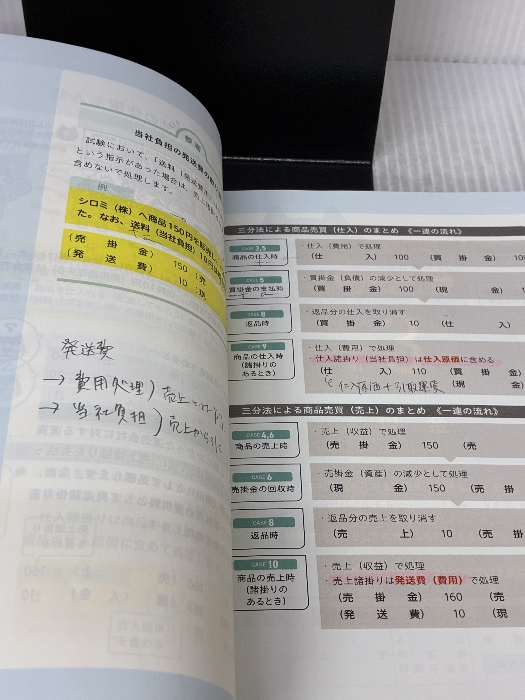 参考
当社負担の発送費の
試験において、「送料(発送費)
という指示があった場合は、売上
含めないで処理します。
例
シロミ(株)へ商品150円を
た。なお、送料(当社負担)10円
(売掛金) 150 (売
(発送費) 10 (現
発送費
→ 費用処理) 売上
→ 当社負担) 売上から
三分法による商品売買(仕入)のまとめ 《一連の流れ》
CASE 3,5
商品の仕入時
・仕入(費用)で処理
(仕入) 100 (買掛金) 10
CASE 5
買掛金の支払時
・買掛金(負債)の減少として処理
(買掛金) 100 (現金) 1
CASE 8
返品時
・返品分の仕入を取り消す
(買掛金) 10 (仕入)
CASE 9
商品の仕入時
(諸掛りの
あるとき)
・仕入(費用)で処理
・仕入諸掛り(当社負担)は仕入原価に含める
(仕入) 110 (買掛金)
(現金)
三分法による商品売買(売上)のまとめ 《一連の流れ》
CASE 4,6
商品の売上時
・売上(収益)で処理
(売掛金) 150 (売
CASE 6
売掛金の回収時
・売掛金(資産)の減少として処理
(現金) 150 (売掛
CASE 8
返品時
・返品分の売上を取り消す
(売上) 10 (売掛
CASE 10
商品の売上時
(諸掛りの
あるとき)
・売上(収益)で処理
・売上諸掛りは発送費(費用)で処理
(売掛金) 160 (売
(発送費) 10 (現